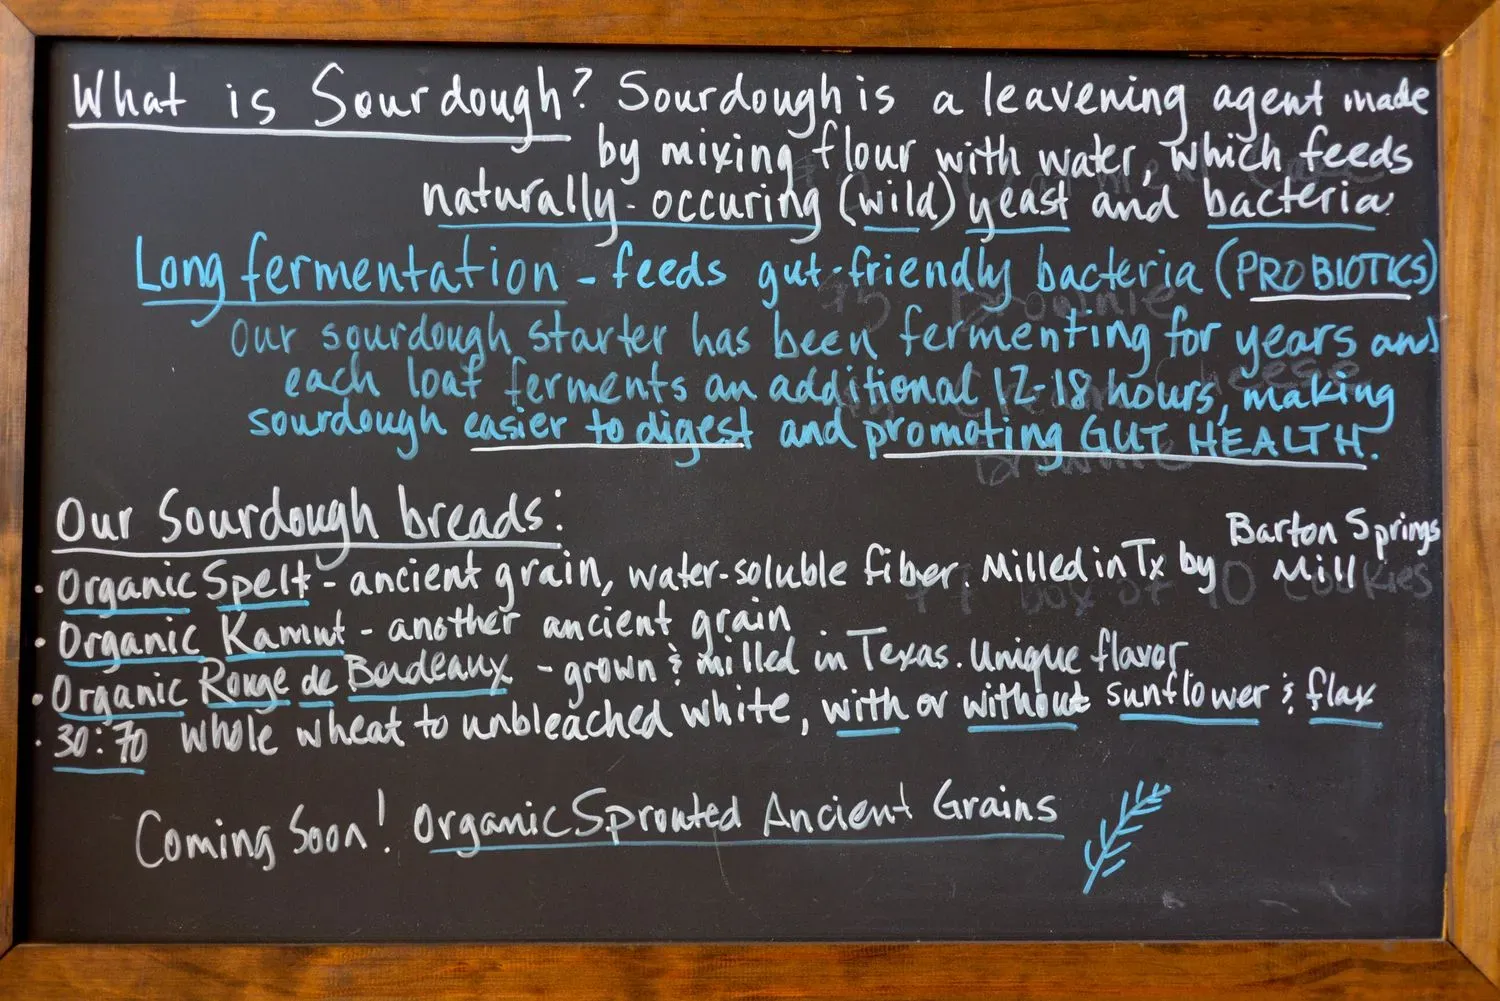 What is Sourdough? Sourdough is a leavening agent made
by mixing flour with water, which feeds
naturally-occuring (wild) yeast and bacteria.
Long fermentation - feeds gut-friendly bacteria (PROBIOTICS)
Our sourdough starter has been fermenting for years and
each loaf ferments an additional 12-18 hours, making
sourdough easier to digest and promoting GUT HEALTH.
Our Sourdough breads:
· Organic Spelt - ancient grain, water-soluble fiber. Milled in Tx by Barton Springs Mill
· Organic Kamut - another ancient grain
· Organic Rouge de Bordeaux - grown & milled in Texas. Unique flavor
· 30:70 whole wheat to unbleached white, with or without sunflower & flax
Coming Soon! Organic Sprouted Ancient Grains